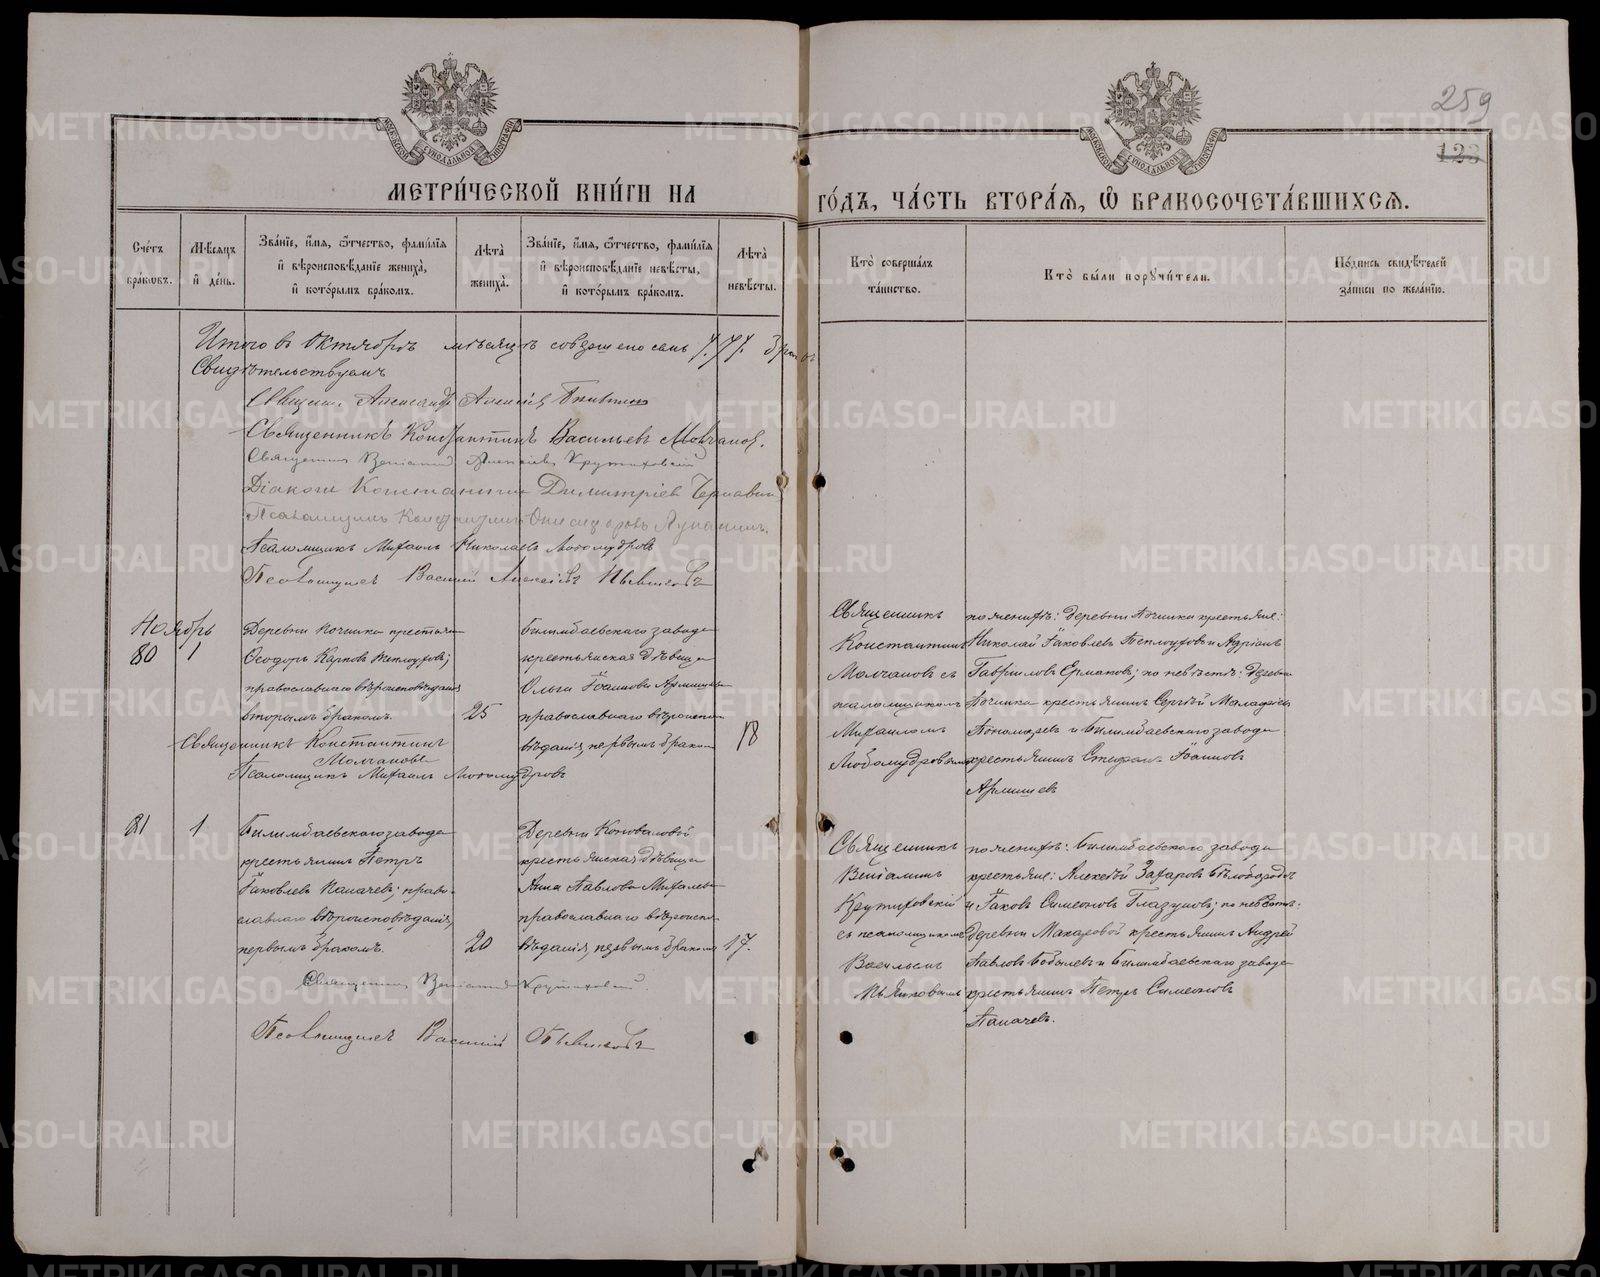 259
123
МЕТРИЧЕСКОЙ КНИГИ НА ГОДЪ, ЧАСТЬ ВТОРАЯ, Ѡ БРАКОСОЧЕТАВШИХСЯ.
Счетъ браковъ.
Мѣсяцъ и день.
Званіе, имя, отчество, фамилія и вѣроисповѣданіе жениха, и которымъ бракомъ.
Лѣта жениха.
Званіе, имя, отчество, фамилія и вѣроисповѣданіе невѣсты, и которымъ бракомъ.
Лѣта невѣсты.
Кто совершалъ таинство.
Кто были поручители.
Подпись свидѣтелей записи по желанію.
Итого въ Октябрѣ мѣсяцѣ совершено семь /7/
Свидѣтельствуемъ
Александръ Алексіевъ
Священникъ Константинъ Васильевъ Молчановъ.
Священникъ Веніаминъ Алексіевъ Крутиховскій
Діаконъ Константинъ Димитріевъ
Псаломщикъ
Псаломщикъ Михаилъ Николаевъ Любомудровъ
Псаломщикъ Василій Алексіевъ
Ноябрь
80 1
Деревни Починка крестьянинъ
Ѳеодоръ Карповъ Теплоуховъ;
православнаго вѣроисповѣданія
вторымъ бракомъ.
25
Билимбаевскаго завода
крестьянская дѣвица
Ольга Іоаннова
православнаго вѣроиспо-
вѣданія, первымъ бракомъ
18
Священникъ
Константинъ
Молчановъ съ
псаломщикомъ
Михаиломъ
Любомудровымъ
по женихѣ: деревни Починка крестьяне:
Николай Іаковлевъ Теплоуховъ и Андріанъ
Гавриловъ Ермаковъ; по невѣстѣ: деревни
Починка крестьянинъ Сергѣй
Пономаревъ и Билимбаевскаго завода
крестьянинъ Стефанъ Іоанновъ
Священникъ Константинъ
Молчановъ
Псаломщикъ Михаилъ Любомудровъ
81 1
Билимбаевскаго завода
крестьянинъ Петръ
Іаковлевъ Палачевъ; право-
славнаго вѣроисповѣданія,
первымъ бракомъ.
20
Деревни Коноваловой
крестьянская дѣвица
Анна Павлова Михалева
православнаго вѣроиспо-
вѣданія, первымъ бракомъ
17.
Священникъ
Веніаминъ
Крутиховскій
съ псаломщикомъ
Васильемъ
по женихѣ: Билимбаевскаго завода
крестьяне: Алексѣй Захаровъ Бѣлобородовъ
и Іаковъ Симеоновъ Глазуновъ; по невѣстѣ:
деревни Макаровой крестьянинъ Андрей
Павловъ Бобылевъ и Билимбаевскаго завода
крестьянинъ Петръ Симеоновъ
Палачевъ.
Священникъ Веніаминъ Крутиховскій.
Псаломщикъ Василій
METRIKI.GASO-URAL.RU